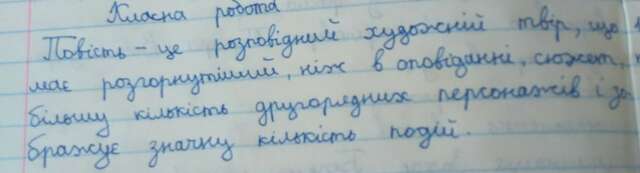 Класна робота
Повість – це розповідний художній твір, що
має розгорнутіший, ніж в оповіданні, сюжет,
більшу кількість другорядних персонажів і зо-
бражує значну кількість подій.